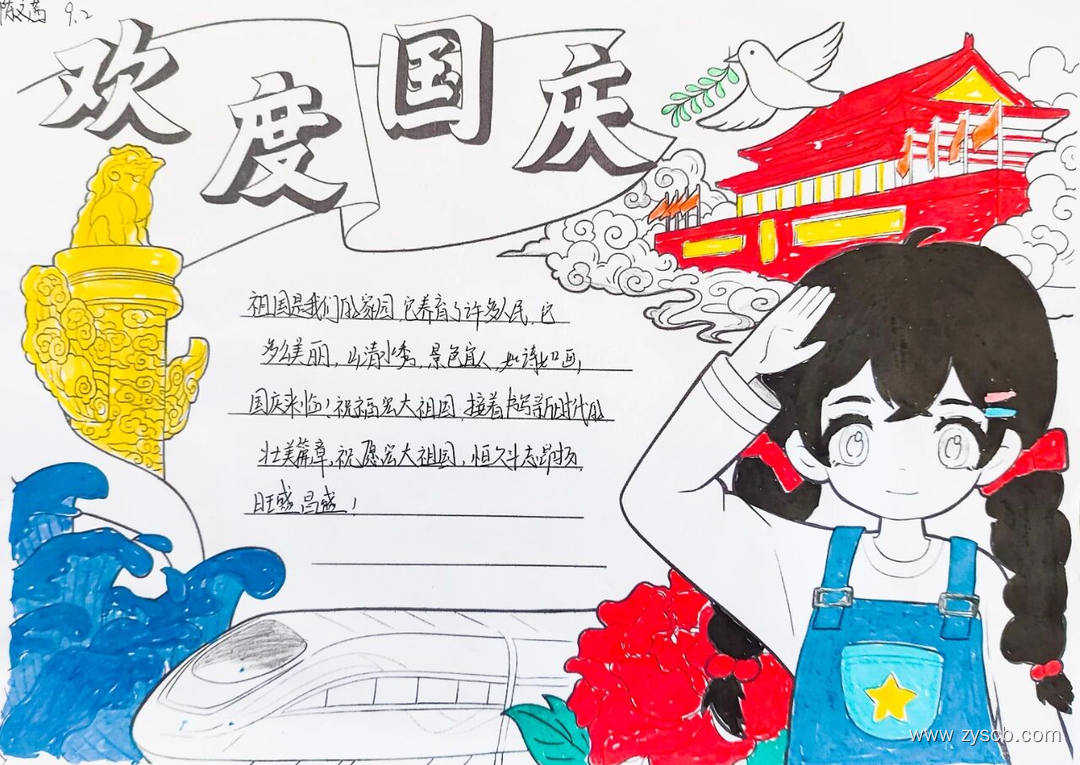 陈文茜 9.2
欢度国庆
祖国是我们的家园,它养育了许多人民,它
多么美丽,山清水秀,景色宜人,如诗如画,
国庆来临!祝福宏大祖国,接着书写新时代的
壮美篇章,祝愿宏大祖国,恒久斗志昂扬,
旺盛昌盛!
www.zyscb.com